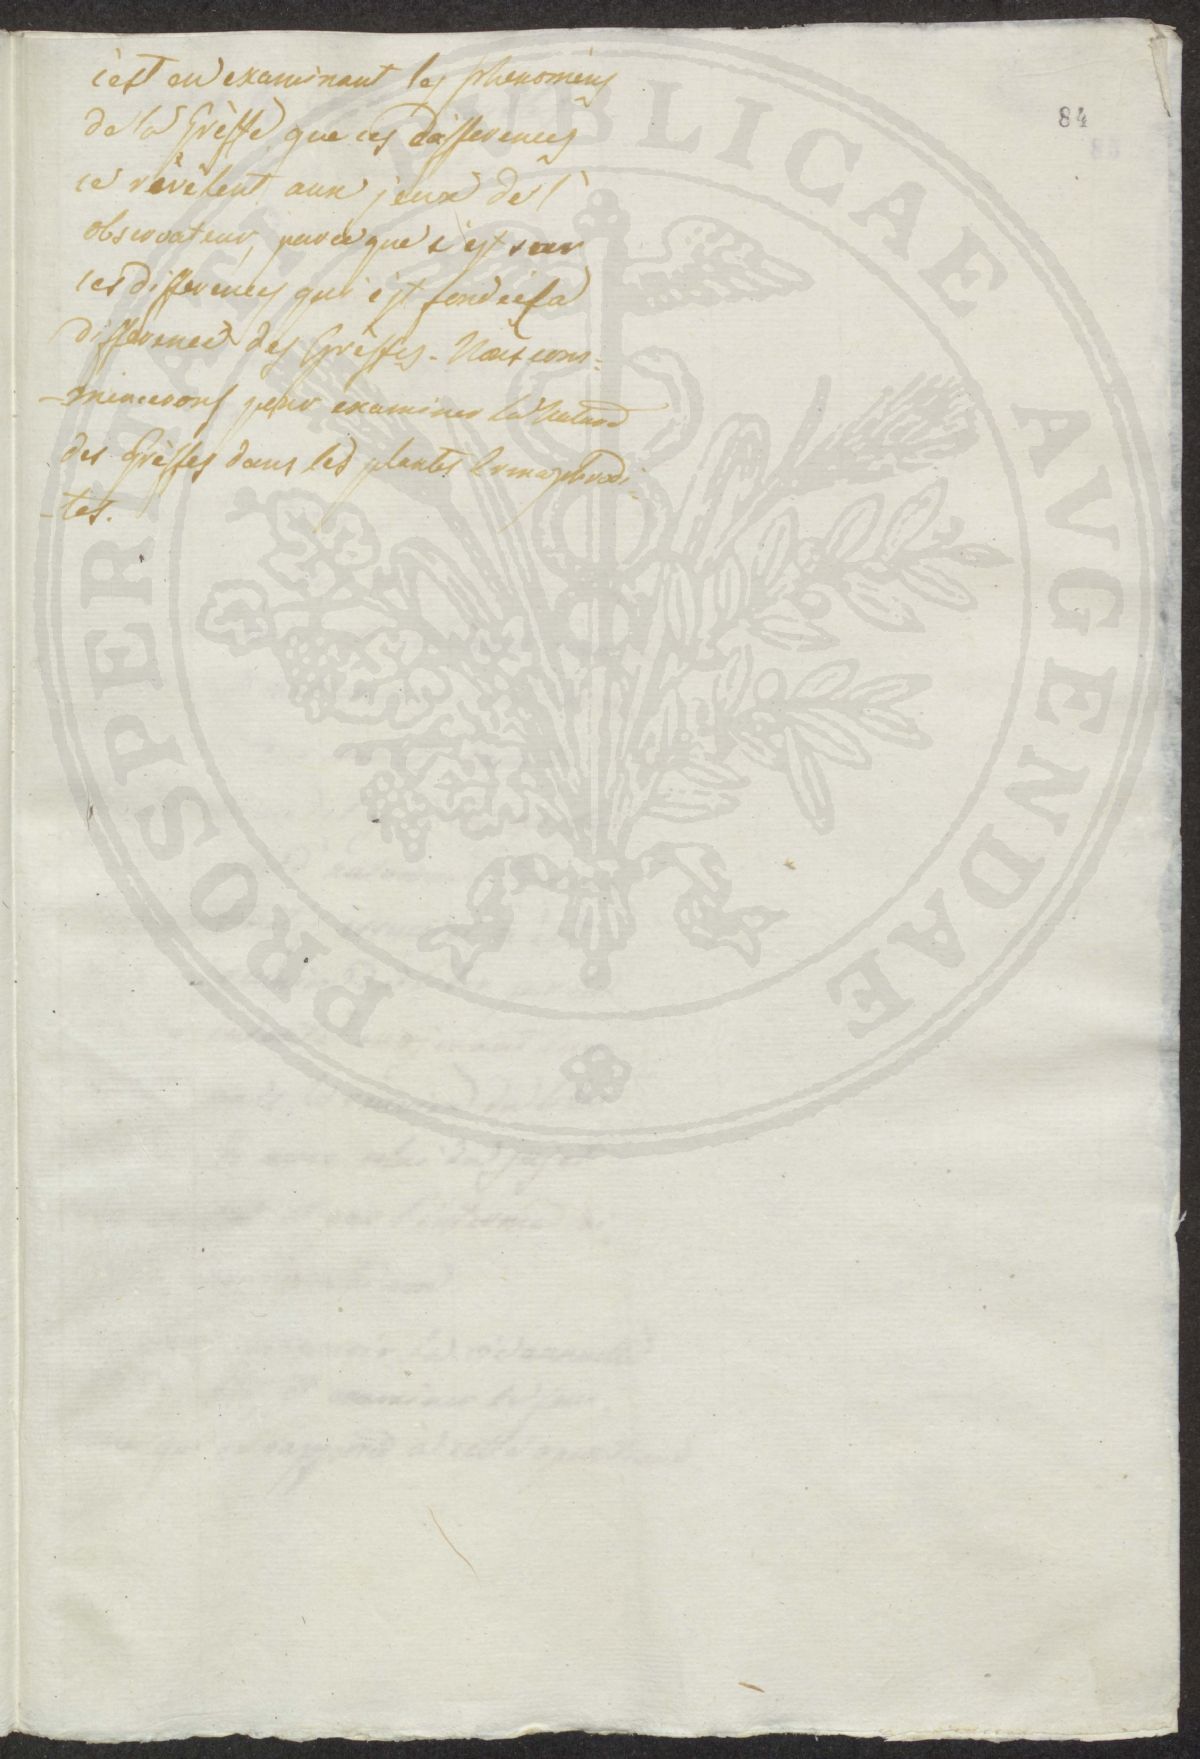 84
c'est en examinant les phenomèns
de la Grèffe que ces differences
ce révèlent aux jeux de l'
observateur, parce que c'est sur
ces differences qui est fondée la
difference des Grèffes. Nous com=
-mencerons pour examiner la Nature
des Grèffes dans les plantes ermaphrodi=
-tes.
PROSPERITATI PVBLICAE AVGENDAE